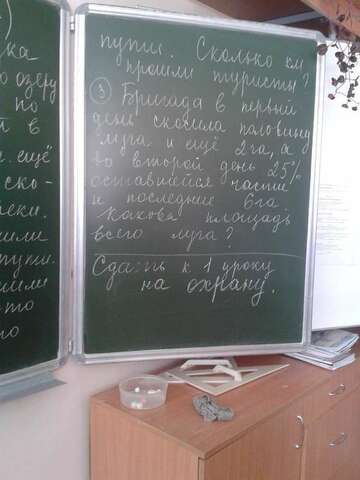 ка
озеру
по
й в
ещё
ско-
ски.
шили
тупи.
шили
то
го
пути. Сколько км
прошли туристы?
③ Бригада в первый
день скосила половину
луга и ещё 2 га, а
во второй день 25%
оставшейся части
и последние 6 га
Какова площадь
всего луга?
Сдать к 1 уроку
на охрану.